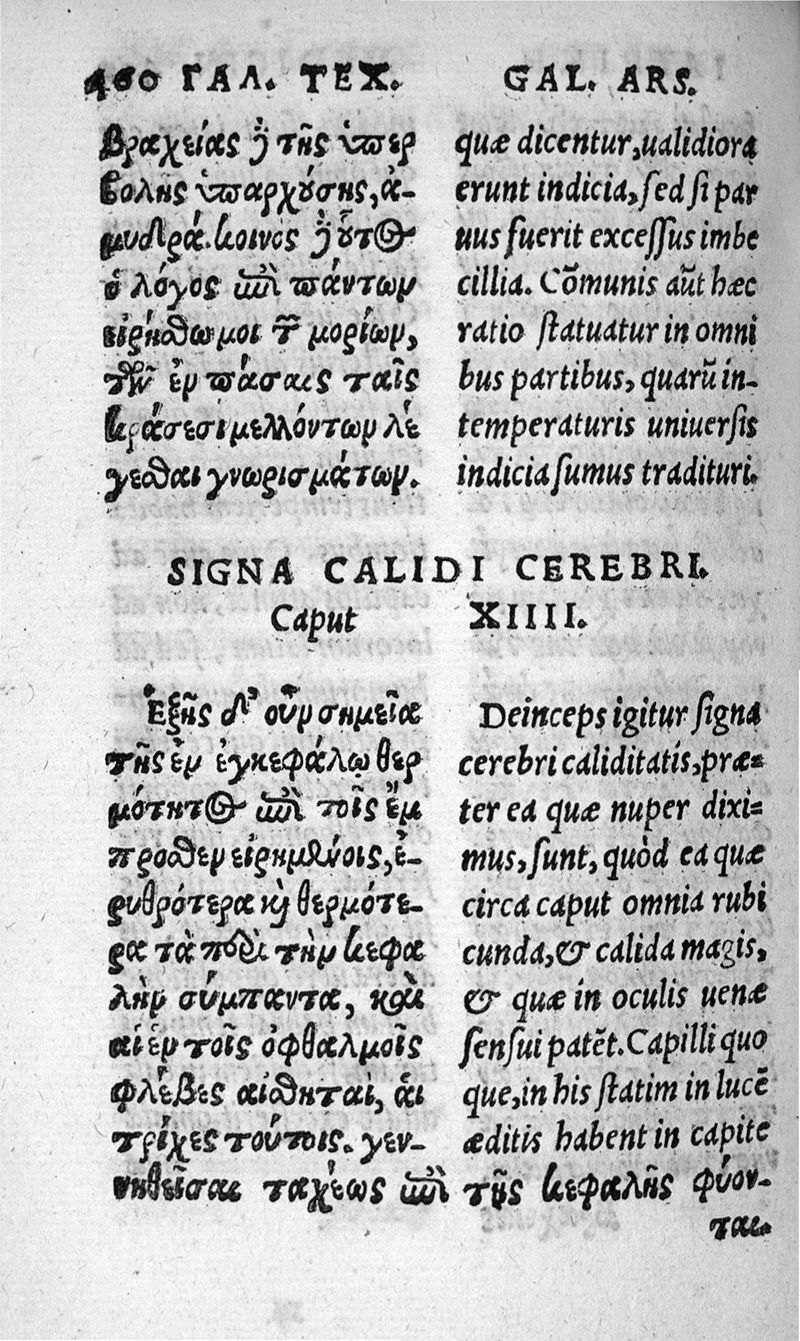 460 ΓΑΛ. ΤΕΧ.
βραχείας δὲ τῆς ὑπερ
βολῆς ὑπαρχούσης, ἀ-
μυδρά. κοινὸς δὲ οὗτος
ὁ λόγος ἐπὶ πάντων
εἰρήσθω μοι τῶν μορίων,
τῶν ἐν πάσαις ταῖς
κράσεσι μελλόντων λέ
γεσθαι γνωρισμάτων.
GAL. ARS.
quæ dicentur, ualidiora
erunt indicia, sed si par
uus fuerit excessus imbe
cillia. Cõmunis aũt hæc
ratio statuatur in omni
bus partibus, quarũ in-
temperaturis uniuersis
indicia sumus tradituri.
SIGNA CALIDI CEREBRI.
Caput XIIII.
Ἑξῆς δ' οὖν σημεῖα
τῆς ἐν ἐγκεφάλω θερ
μότητος ἐπὶ τοῖς ἔμ
προσθεν εἰρημένοις, ἐ-
ρυθρότερα καὶ θερμότε-
ρα τὰ περὶ τὴν κεφα
λὴν σύμπαντα, καὶ
αἱ ἐν τοῖς ὀφθαλμοῖς
φλέβες αἰσθηταὶ, αἱ
τρίχες τούτοις. γεν-
νηθεῖσαι ταχέως ἐπὶ τῆς κεφαλῆς φύον-
ται.
Deinceps igitur signa
cerebri caliditatis, præ-
ter ea quæ nuper dixi-
mus, sunt, quòd ea quæ
circa caput omnia rubi
cunda, & calida magis,
& quæ in oculis uenæ
sensui patẽt. Capilli quo
que, in his statim in lucẽ
æditis habent in capite